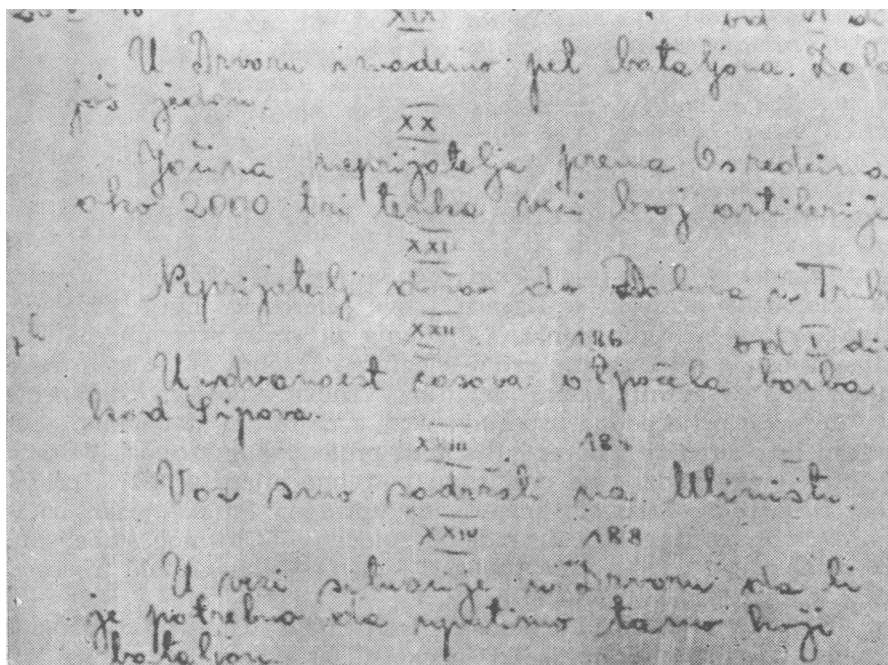 XIX od VI di
U Drvaru imademo pet bataljona.
još jedan.
XX
Jačina neprijatelja prema Osredcima
oko 2000 tri tenka veći broj artilerije
XXI
Neprijatelj došao do
XXII 186 od I di
U dvanaest časova otpočela borba
kod Lipova.
XXIII 187
Voz smo zadržali na Mliništu.
XXIV 188
U vezi situacije u Drvaru da li
je potrebno da uputimo tamo koji
bataljon.